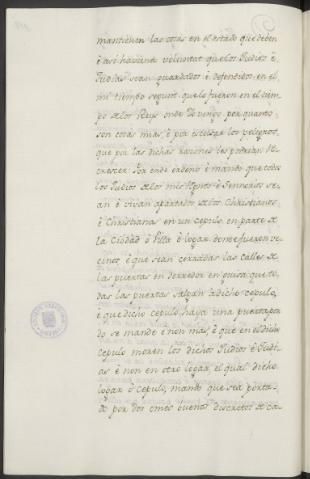 mantienen las cosas en el estado que deben
è asi havran voluntat que los Judios è
Judias sean guardados è defendidos en el
mi tiempo segunt que lo fueron en el tiem-
po de los Reys onde Yo vengo por quanto
son cosas mias, è por escusar los peligros,
que por las dichas razones les podrian re-
crescer. Por ende ordenò è mando que todos
los Judios de los mis Regnos è Senneríos se-
an è vivan apartados de los Christianos
è Christianas en un cepulo en parte de
la Ciudad ò Villa ò logar donde fueren ve-
cinos, è que sean cerradas las calles de
las puertas en derredor en guisa que to-
das las puertas salgan à dicho cepulo,
è que dicho cepulo haya una puerta por
do se mande è non mas, è que en el dicho
cepulo moren los dichos Judios è Judi-
as è non en otro logar, el qual dicho
logar ò cepulo, mando que sea porta-
do por dos omes buenos discretos de ca-